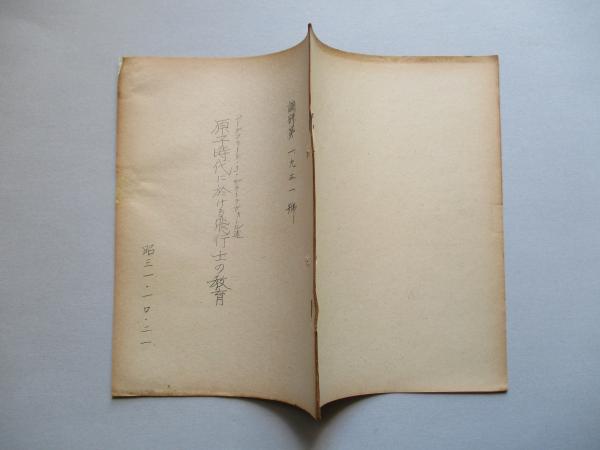 調研第一九三一號
原子時代に於ける飛行士の教育
昭三一・一〇・二一